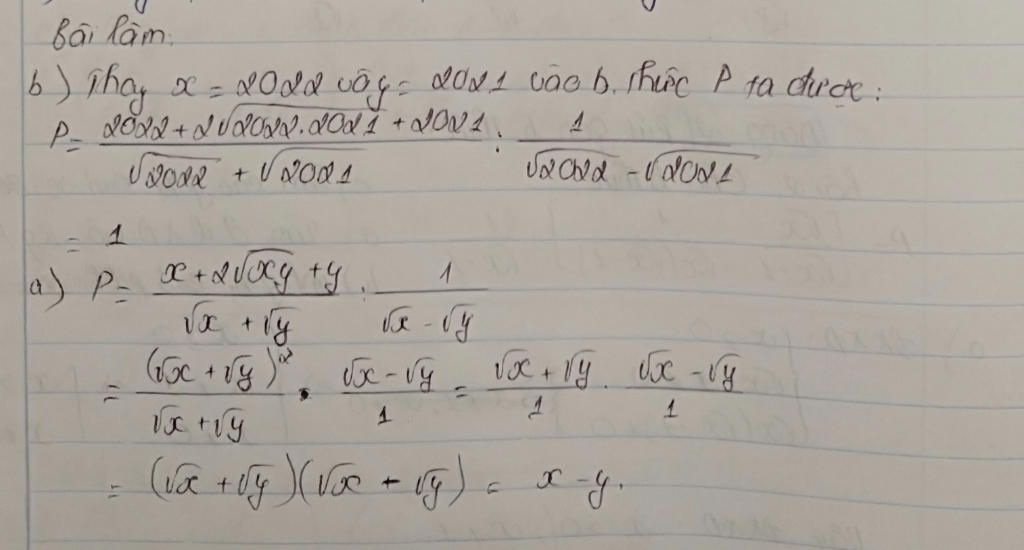 Bài làm:
b) Thay x = 2022 và y = 2021 vào b. thức P ta được:
P = (2022 + 2√(2022.2021) + 2021)/(√2022 + √2021) : 1/(√2022 - √2021)
= 1
a) P = (x + 2√(xy) + y)/(√x + √y) : 1/(√x - √y)
= (√x + √y)²/(√x + √y) . (√x - √y)/1 = (√x + √y)/1 . (√x - √y)/1
= (√x + √y)(√x - √y) = x - y.